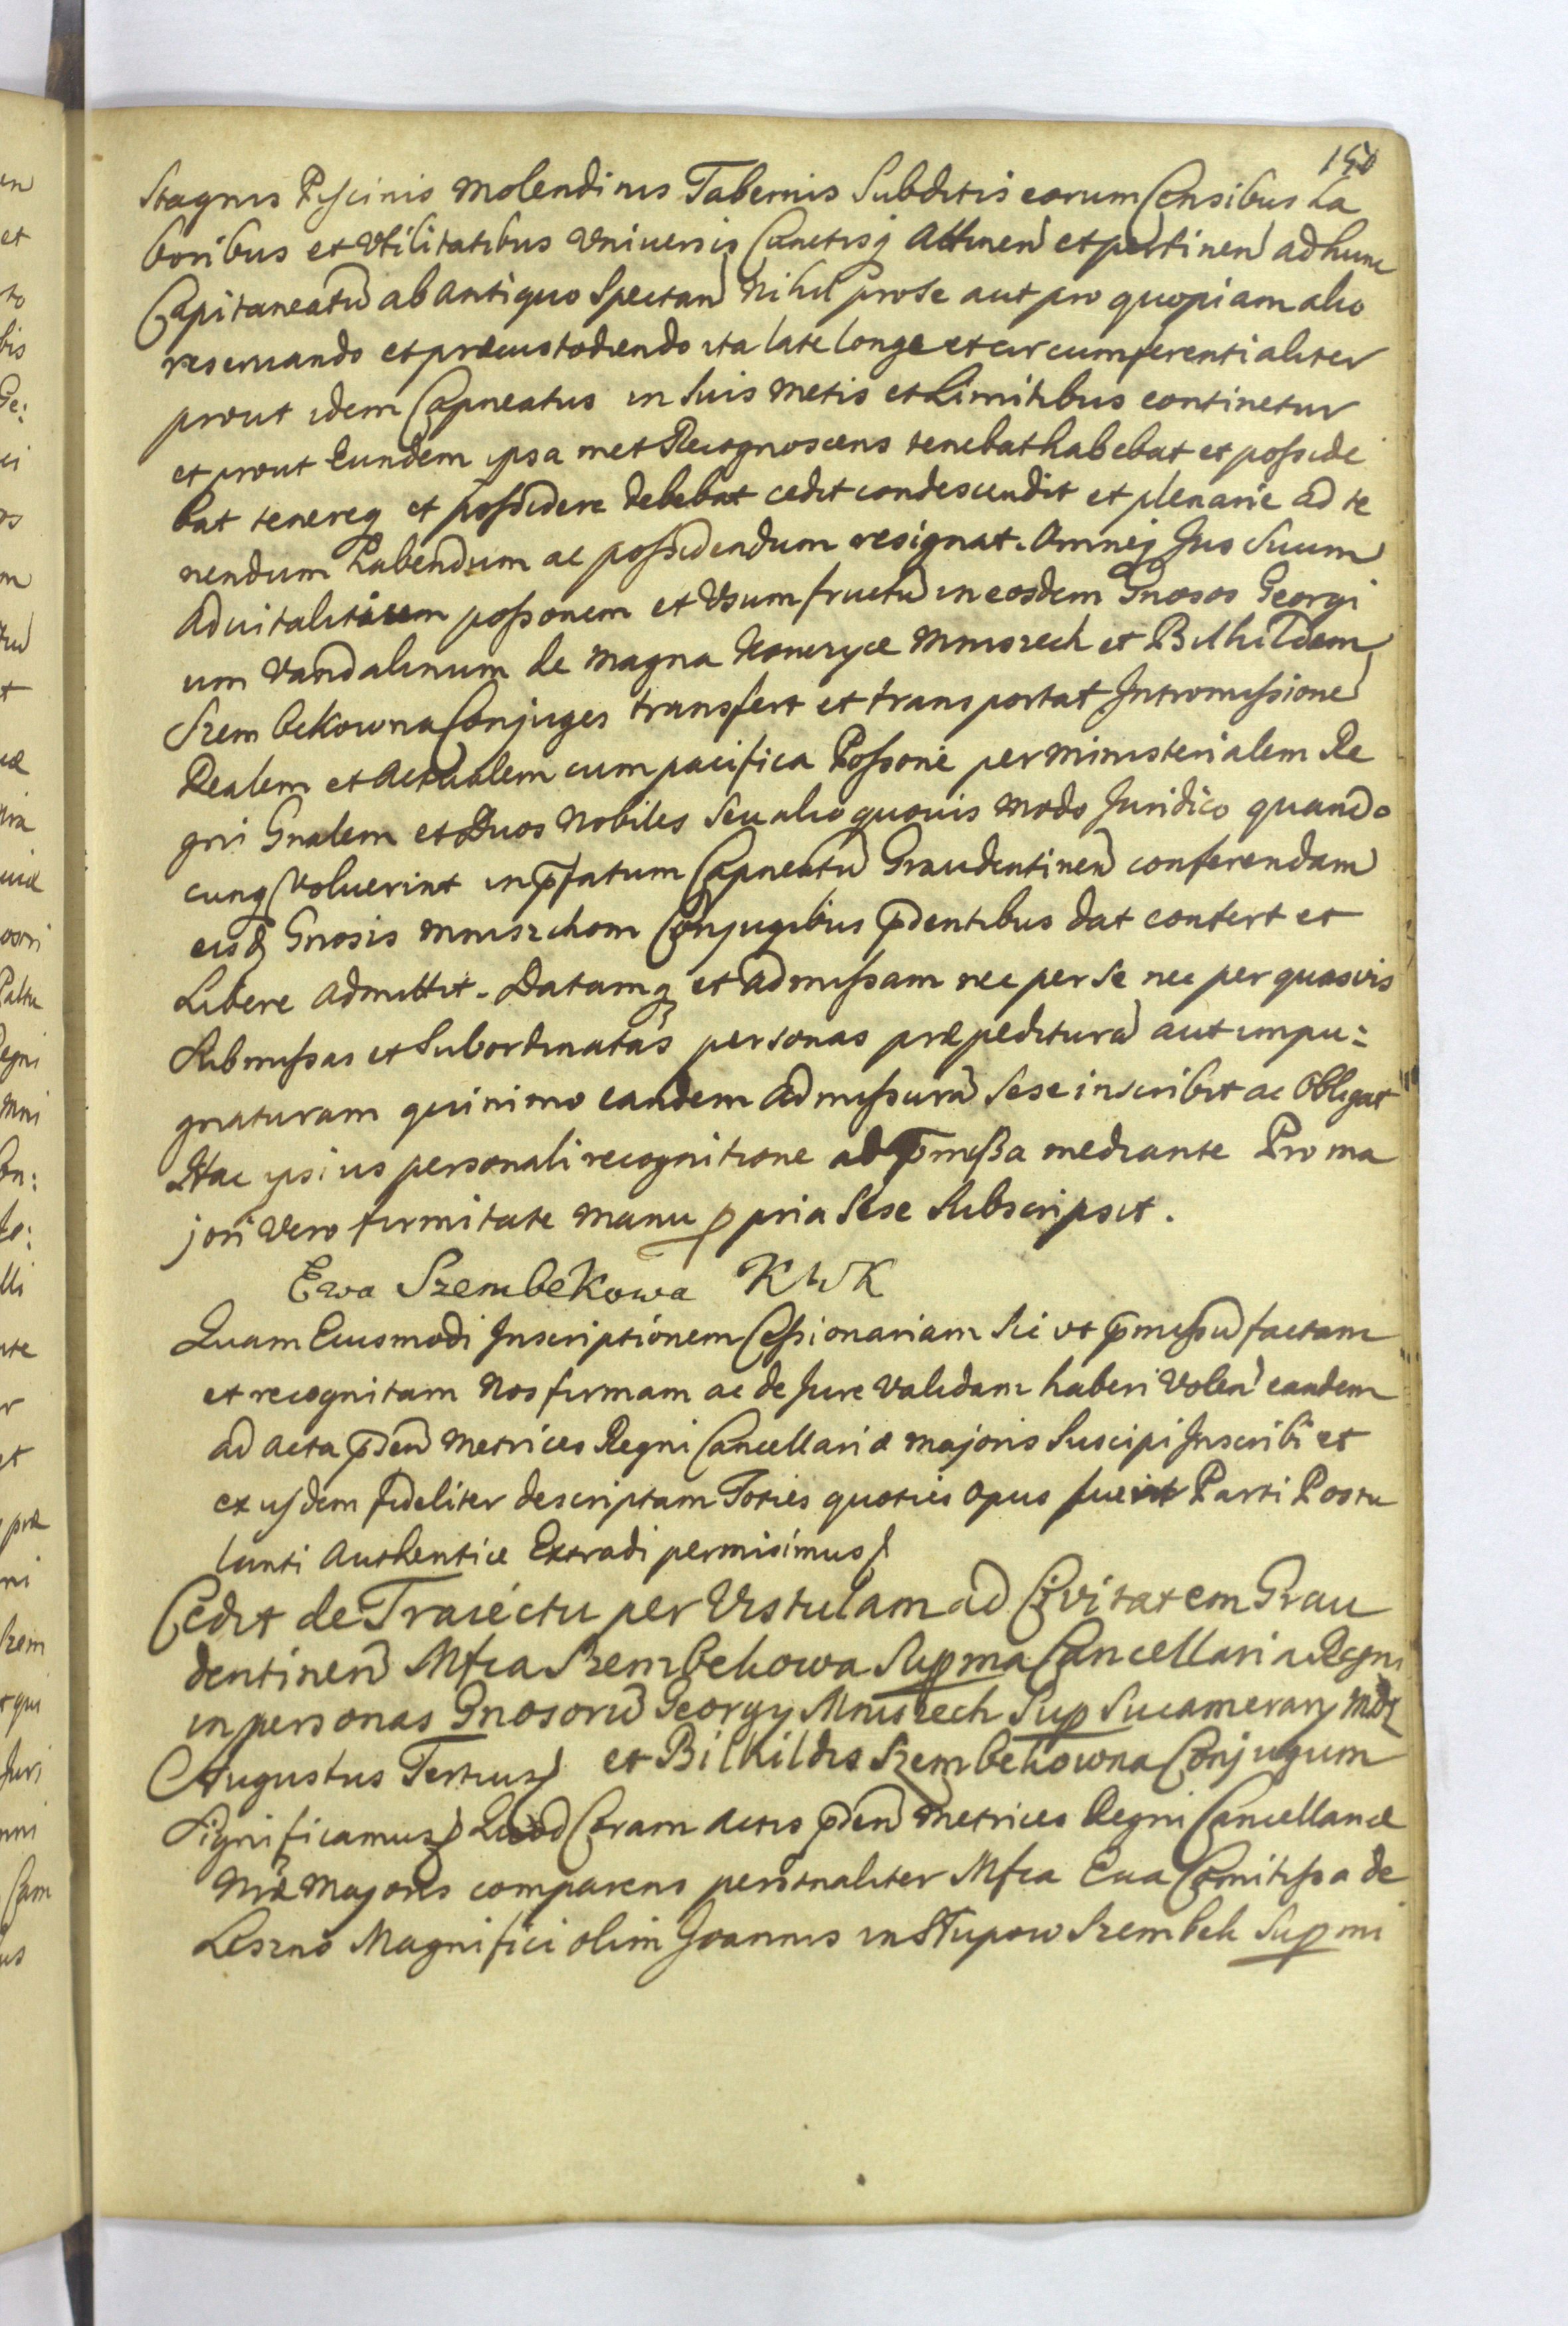 150
Stagnis Piscinis Molendinis Tabernis Subditis eorum Censibus La
boribus et Vtilitatibus Vniuersis Cunctisq Attinen et pertinen ad hunc
Capitaneatu ab antiquo Spectan Nihil pro se aut pro quopiam alio
reseruando et præcustodiendo ita late longe et circumferentialiter
prout idem Capneatus in suis metis et Limitibus continetur
et prout Eundem ipsa met Recognoscens tenebat habebat et posside
bat tenereq et possidere debebat cedit condescendit et plenarie ad te
nendum habendum ac possidendum resignat. Omneq Jus Suum
aduitalitium possonem et Vsumfructu in eosdem Gnosos Georgi
um Vandalinum de Magna Konczyce Mniszech et Bilhildem
Szembekowna Conjuges transfert et transportat Intromissione
Realem et Actualem cum pacifica Possone per Ministerialem Re
gni Gnalem et Duos Nobiles Seu alio quouis modo Juridico quando
cunq Voluerint in pfatum Capneatu Graudentinen conferendam
eisd Gnosis Mniszchom Conjugibus pdentibus dat confert et
Libere admittit. Datamq et admissam nec per se nec per quasvis
Submissas et Subordinatas personas præpeditura aut impu:
gnaturam quinimo eandem admissura sese inscribit ac Obligat
Hac ipsius personali recognitione ad pmissa mediante Pro ma
jori Vero firmitate manu ppria Sese Subscripsit.
Ewa Szembekowa KWK
Quam Eiusmodi Inscriptionem Cessionariam Sic vt pmissu factam
et recognitam Nos firmam ac de Jure Validam haberi Volen eandem
ad acta pden Metrices Regni Cancellariæ majoris Suscipi Inscribi et
ex ijsdem fideliter descriptam Toties quoties opus fuerit Parti Postu
lanti Authentice Extradi permisimus
Cedit de Traiectu per Vistulam ad Civitatem Grau
dentinen Mfca Szembekowa Supma Cancellaria Regni
in personas Gnosoru Georgy Mniszech Sup Sucamerary MDL
et Bilhildis Szembekowna Conjugum
Augustus Tertius
Significamus Quod Coram Actis pden Metrices Regni Cancellariæ
Nræ Majoris comparens personaliter Mfca Eua Comitissa de
Leszno Magnifici olim Joannis in Słupow Szembek Supmi